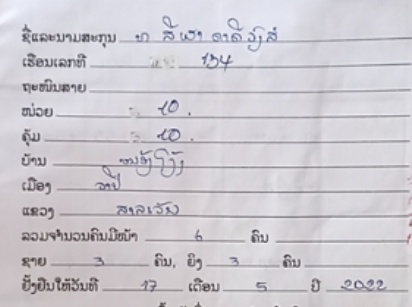 ຊື່ແລະນາມສະກຸນ ທ ສີ
ເຮືອນເລກທີ 134
ຖະໜົນສາຍ
ໜ່ວຍ 10 .
ຄຸ້ມ 10 .
ບ້ານ
ເມືອງ ວາປີ
ແຂວງ ສາລະວັນ
ລວມຈຳນວນຄົນມີໜ້າ 6 ຄົນ
ຊາຍ 3 ຄົນ, ຍິງ 3 ຄົນ
ຢັ້ງຢືນໃຫ້ວັນທີ 17 ເດືອນ 5 ປີ 2022